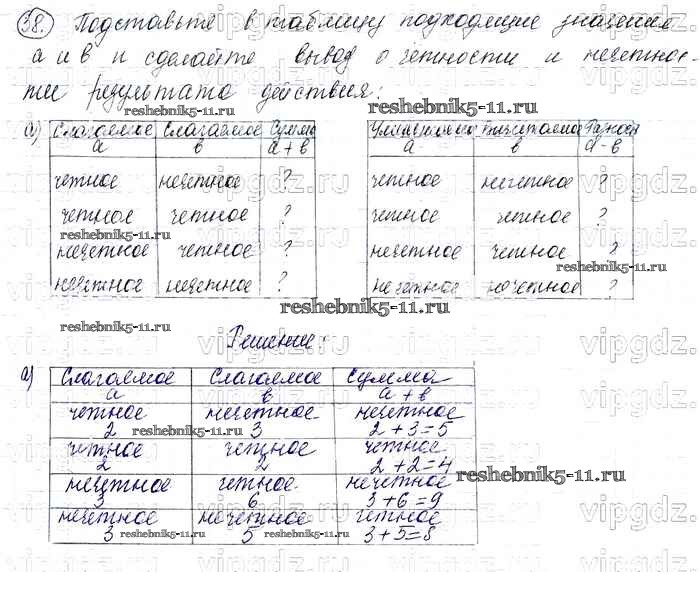 38. Подставьте в таблицу подходящие значения
а и в и сделайте вывод о четности и нечетнос-
ти результата действия:
а) Слагаемое Слагаемое Сумма
а в а + в
четное нечетное ?
четное четное ?
нечетное четное ?
нечетное нечетное ?
Уменьшаемое Вычитаемое Разность
а в а - в
четное нечетное ?
четное четное ?
нечетное четное ?
нечетное нечетное ?
Решение:
а) Слагаемое Слагаемое Сумма
а в а + в
четное нечетное нечетное
2 3 2 + 3 = 5
четное четное четное
2 2 2 + 2 = 4
нечетное четное нечетное
3 6 3 + 6 = 9
нечетное нечетное четное
3 5 3 + 5 = 8
reshebnik5-11.ru
reshebnik5-11.ru
reshebnik5-11.ru
reshebnik5-11.ru
reshebnik5-11.ru
reshebnik5-11.ru
reshebnik5-11.ru
reshebnik5-11.ru
reshebnik5-11.ru
reshebnik5-11.ru
vipgdz.ru